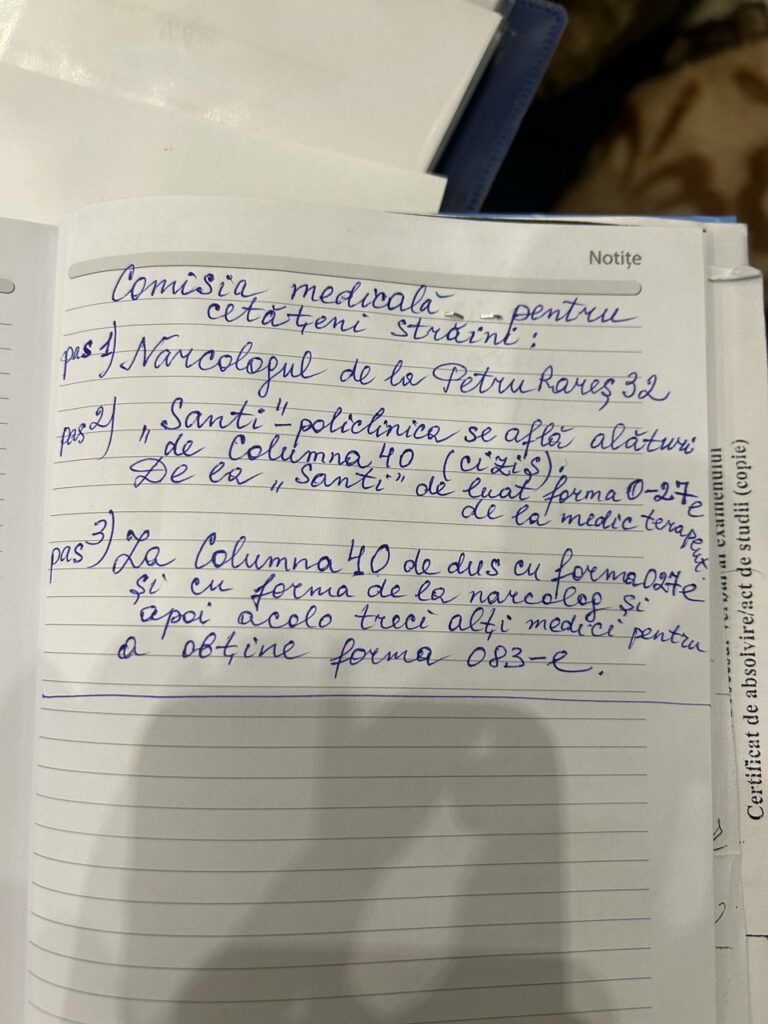 Notițe
Comisia medicală pentru
cetățeni străini:
pas 1) Narcologul de la Petru Rareș 32
pas 2) „Santi" – policlinica se află alături
de Columna 40 (cizis).
De la „Santi" de luat forma 0-27e
de la medic terapeut.
pas 3) La Columna 40 de dus cu forma 027e
și cu forma de la narcolog și
apoi acolo treci alți medici pentru
a obține forma 083-e.
examenului
Certificat de absolvire/act de studii (copie)